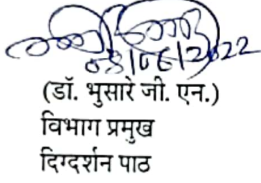 03/06/2022
(डॉ. भुसारे जी. एन.)
विभाग प्रमुख
दिग्दर्शन पाठ